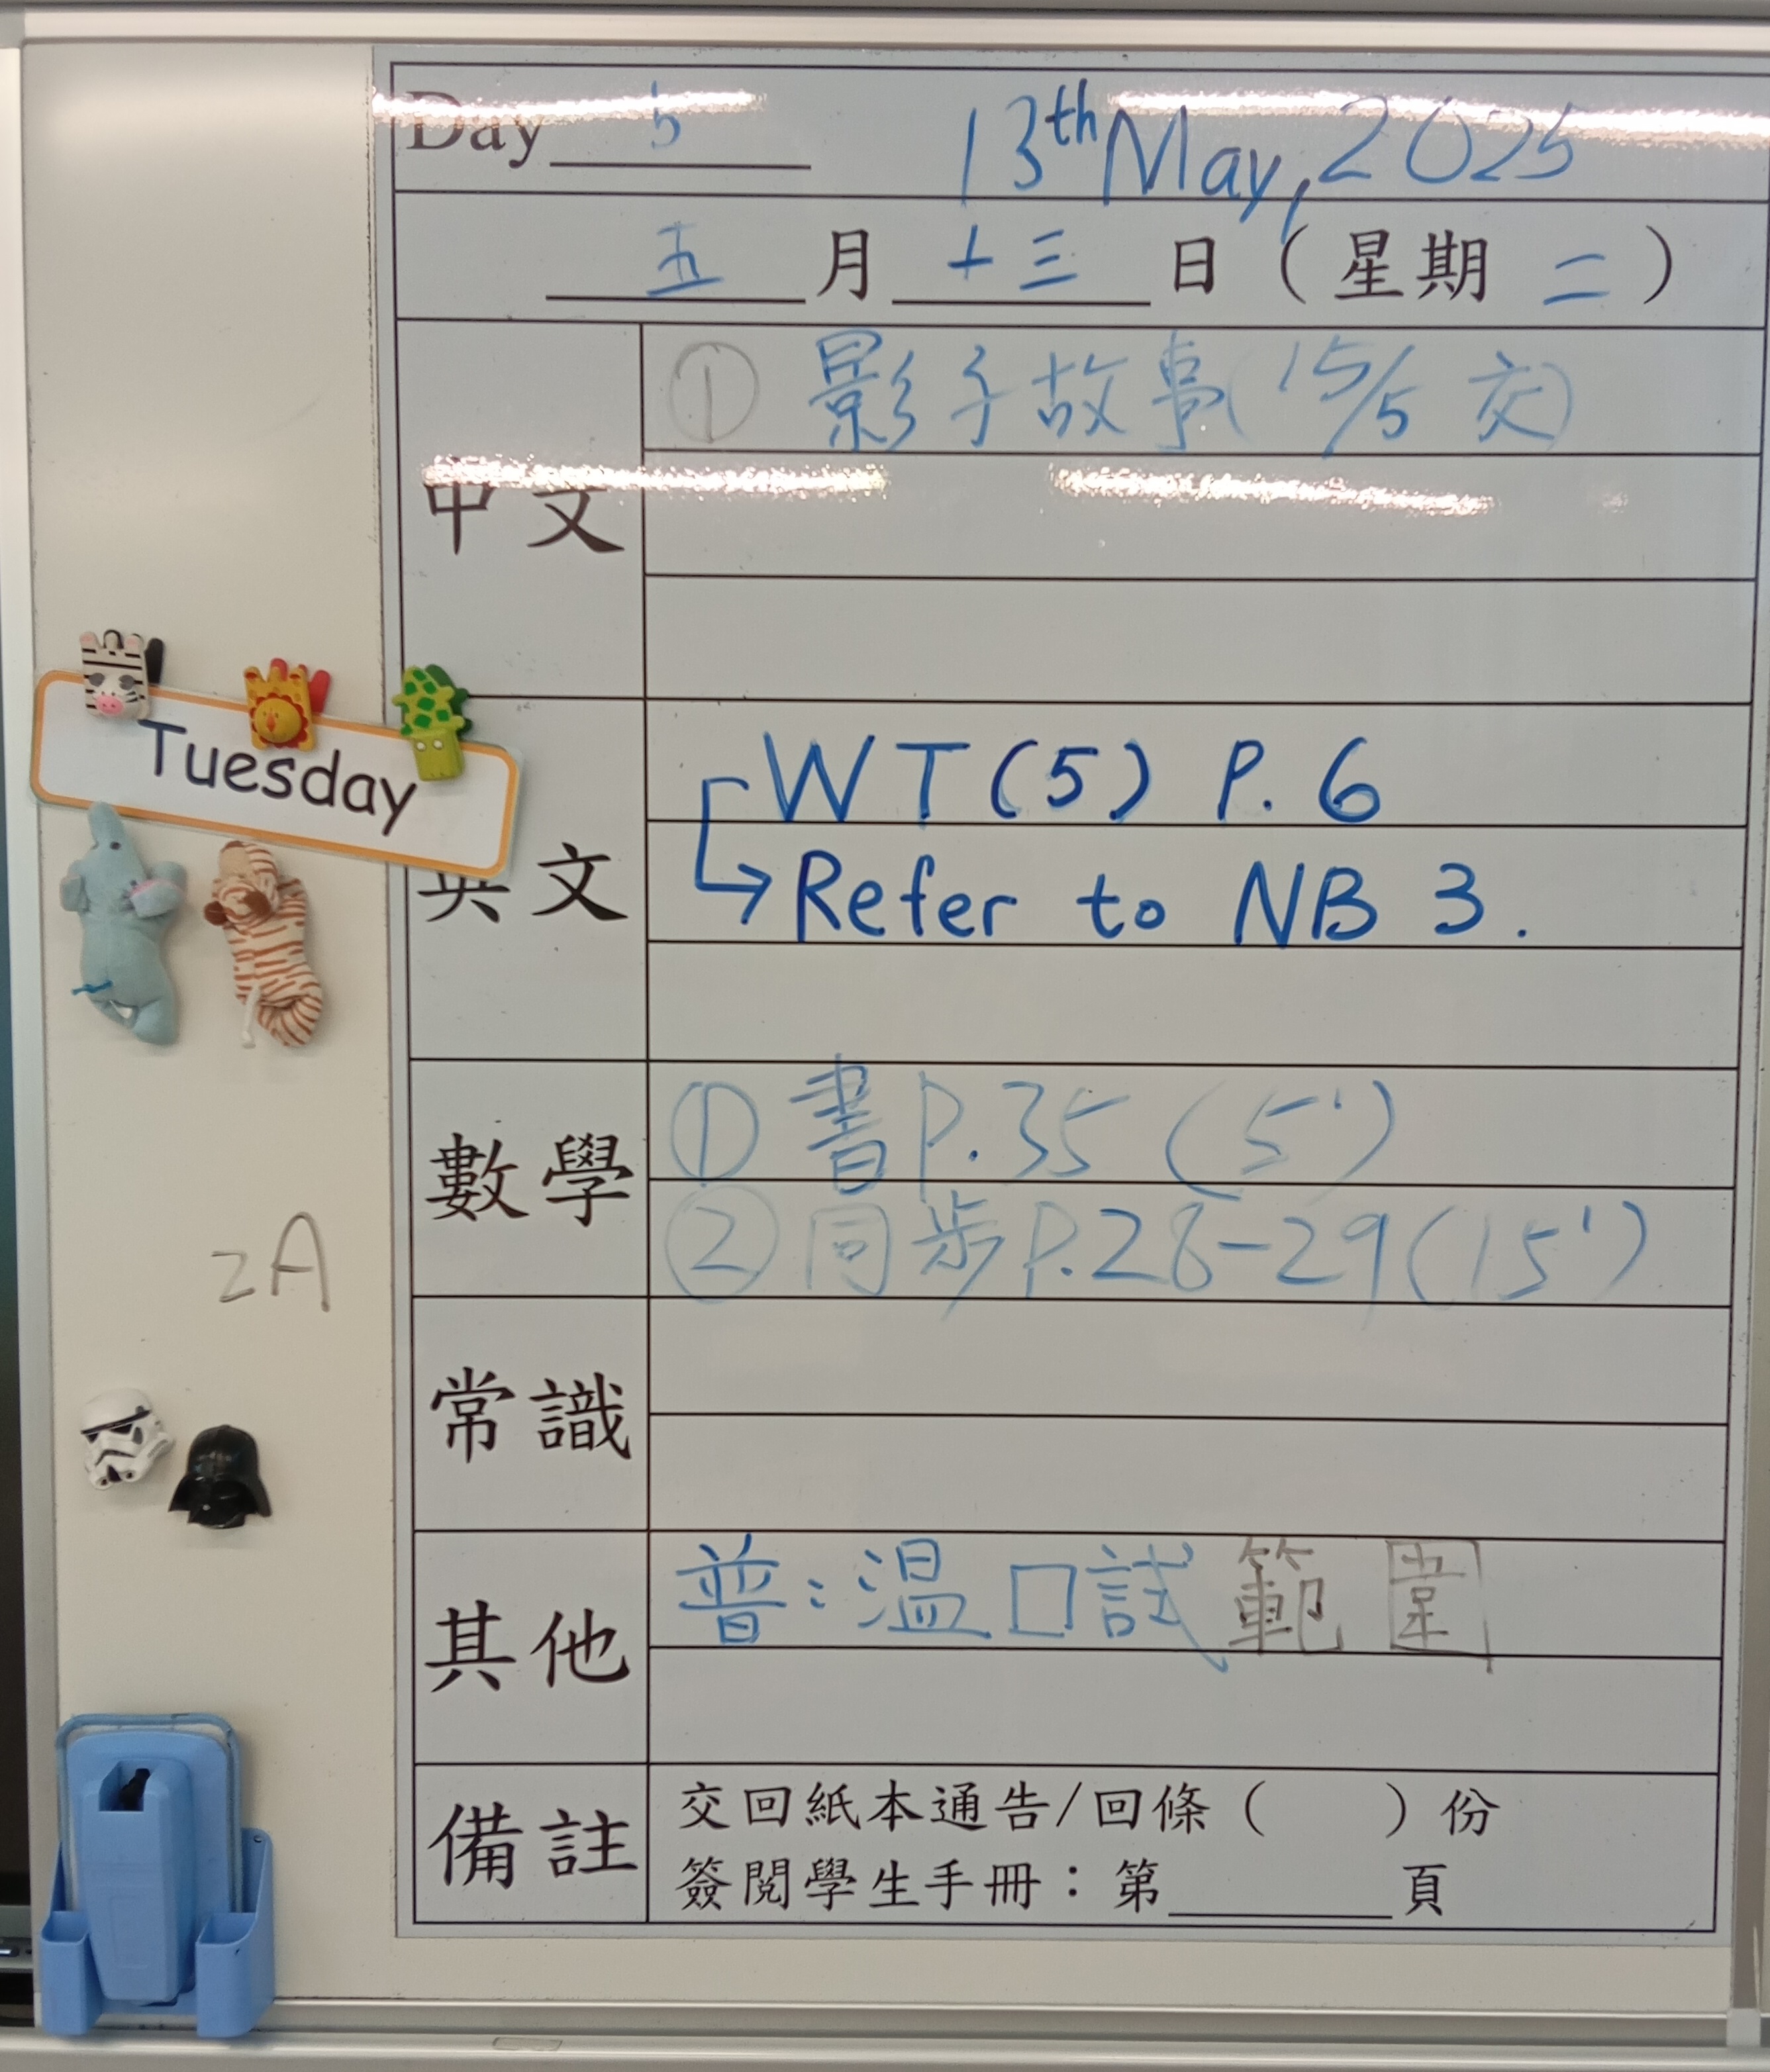 Day 5 13th May, 2025
五 月 十三 日 ( 星期 二 )
中文
① 影子故事 (15/5 交)
Tuesday
英文
WT(5) P. 6
→ Refer to NB 3.
數學
① 書 P.35 (5')
② 同步 P.28-29 (15')
2A
常識
其他
普：溫口試範圍
備註
交回紙本通告/回條（ ）份
簽閱學生手冊：第______頁